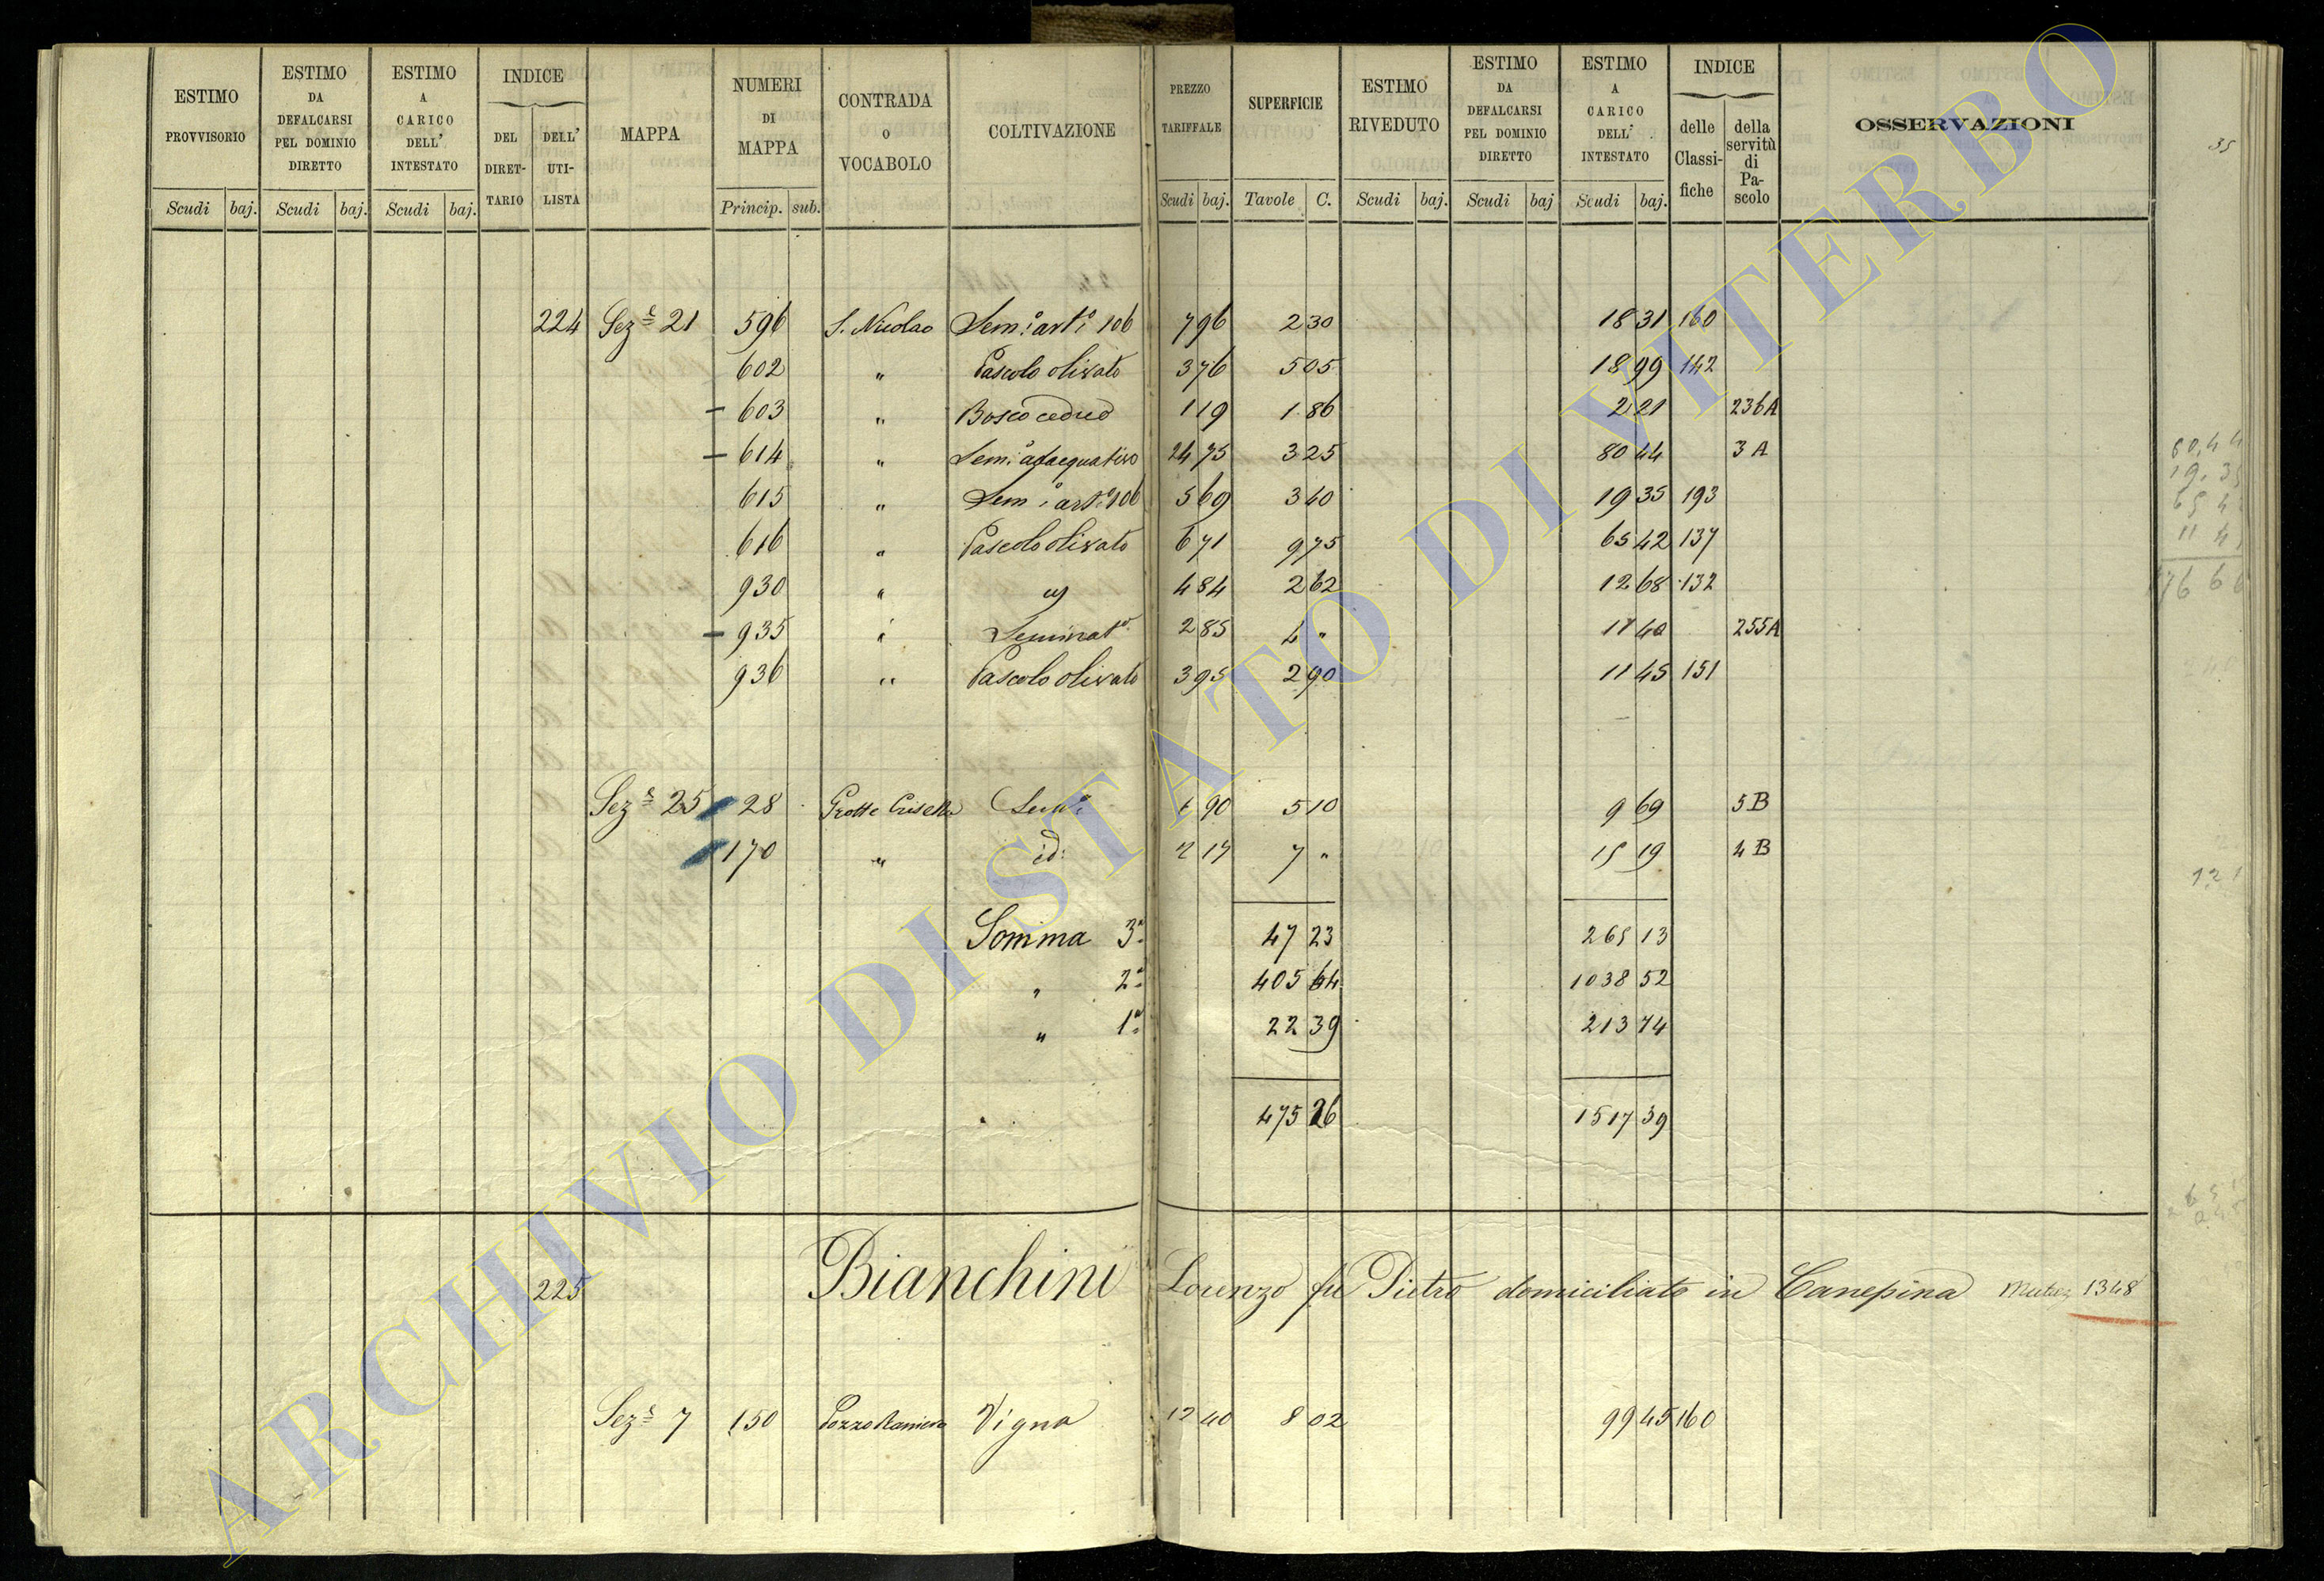 ESTIMO PROVVISORIO
Scudi baj.
ESTIMO DA DEFALCARSI PEL DOMINIO DIRETTO
Scudi baj.
ESTIMO A CARICO DELL' INTESTATO
Scudi baj.
INDICE
DEL DIRET-TARIO
DELL' UTI-LISTA
MAPPA
NUMERI DI MAPPA
Princip. sub.
CONTRADA o VOCABOLO
COLTIVAZIONE
PREZZO TARIFFALE
Scudi baj.
SUPERFICIE
Tavole C.
ESTIMO RIVEDUTO
Scudi baj.
ESTIMO DA DEFALCARSI PEL DOMINIO DIRETTO
Scudi baj
ESTIMO A CARICO DELL' INTESTATO
Scudi baj.
INDICE
delle Classi-fiche
della servitù di Pa-scolo
OSSERVAZIONI
35
224 Sez.e 21 596 S. Nicolao Sem.o art.o 106 7 96 2 30 18 31 160
602 " Pascolo olivato 3 76 5 05 18 99 142
603 " Bosco ceduo 1 19 1 86 2 21 236A
614 " Sem.o adaequativo 24 75 3 25 80 44 3 A
615 " Sem.o art.o 106 5 69 3 40 19 35 193
616 " Pascolo olivato 6 71 9 75 65 42 137
930 " 4 84 2 62 12 68 132
935 " Seminat.o 2 85 4 " 11 40 255A
936 " Pascolo olivato 3 95 2 90 11 45 151
Sez.e 25 28 Grotte Sem.o 1 90 5 10 9 69 5 B
170 " id: 2 17 7 " 15 19 4 B
Somma 3.a 47 23 265 13
" 2.a 405 64 1038 52
" 1.a 22 39 213 74
475 26 1517 39
225 Bianchini Lorenzo fu Pietro domiciliato in Canepina 1348
Sez.e 7 150 Pozzo Raniero Vigna 12 40 8 02 99 45 160
ARCHIVIO DI STATO DI VITERBO